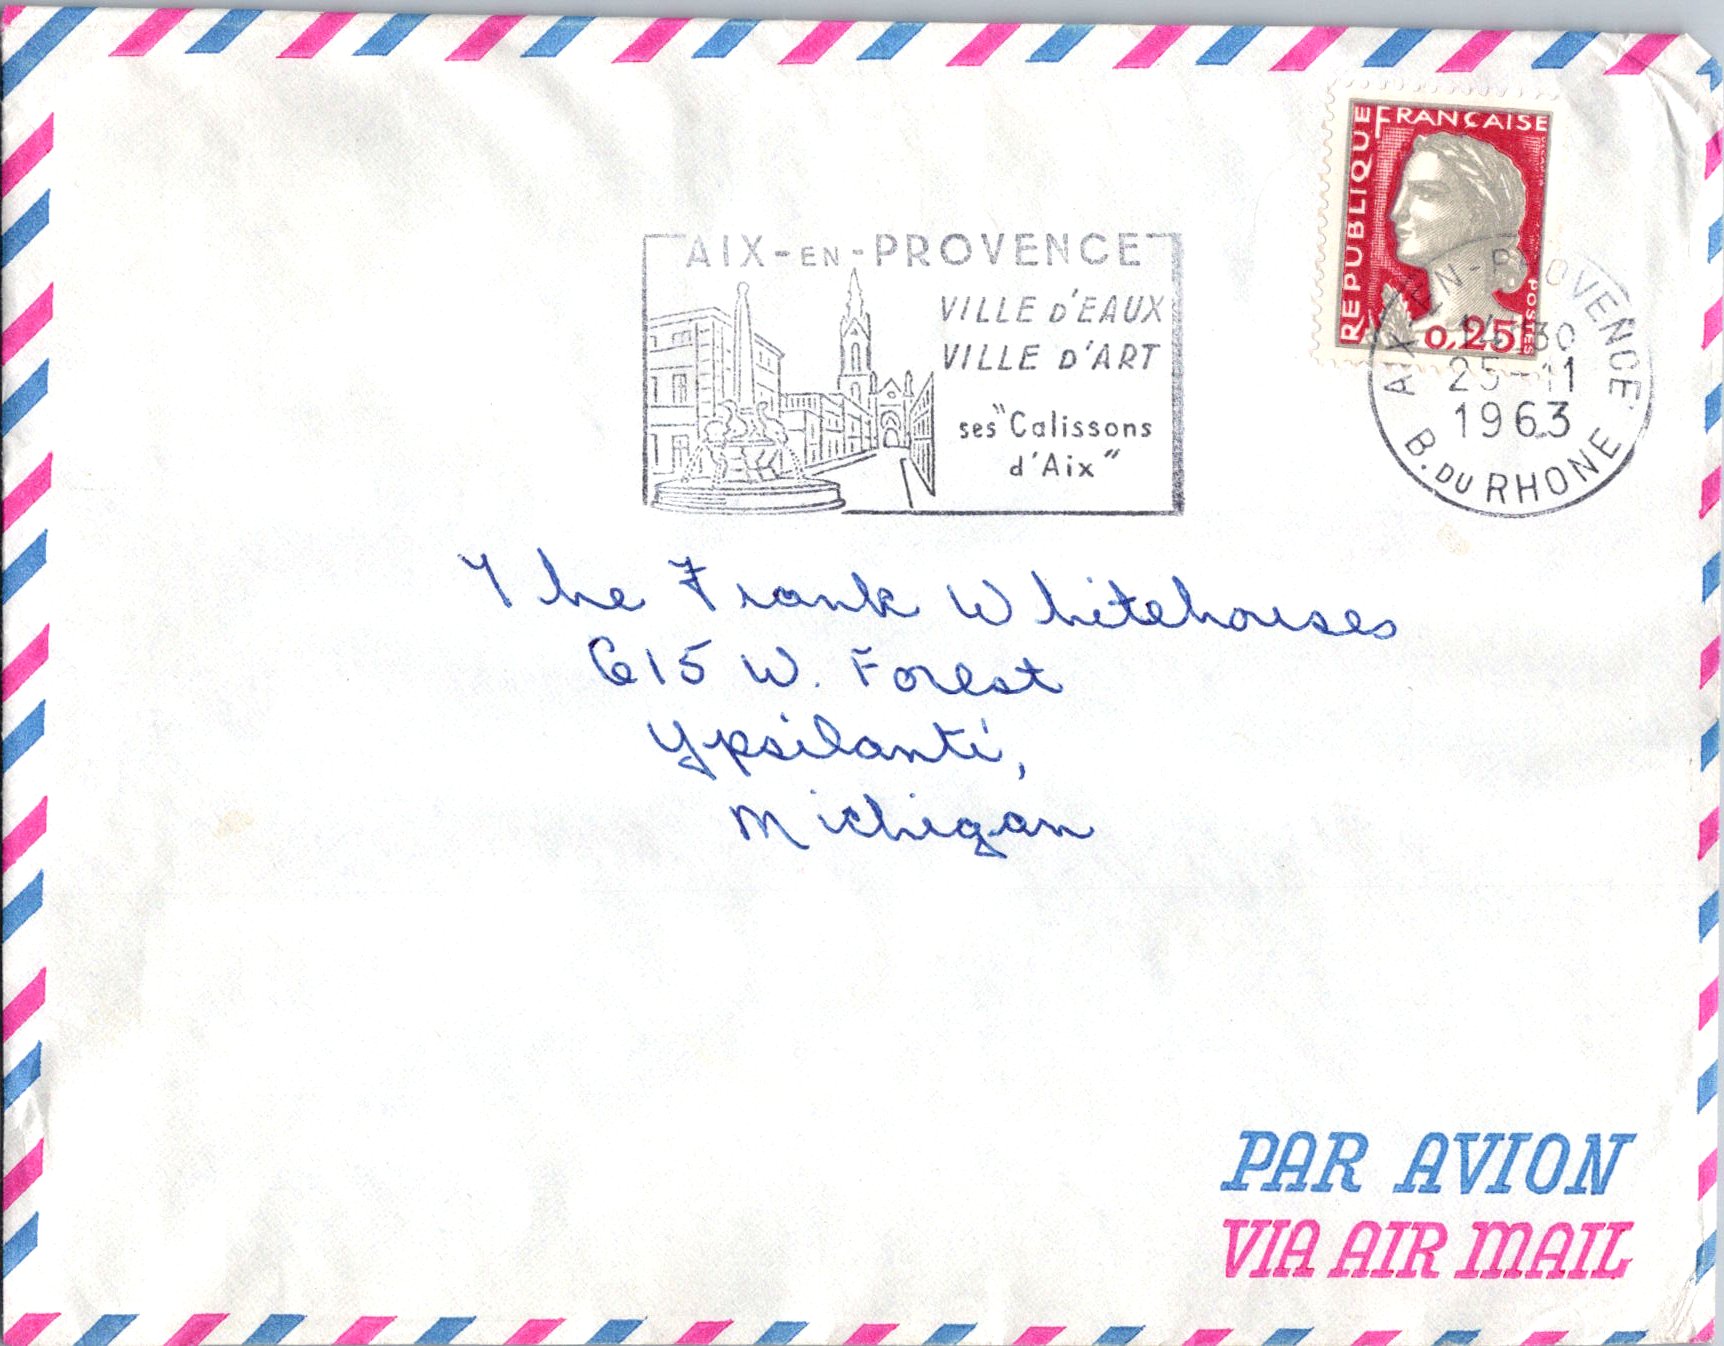 RÉPUBLIQUE FRANÇAISE
POSTES
0,25
AIX-EN-PROVENCE
VILLE D'EAUX
VILLE D'ART
ses "Calissons
d'Aix"
AIX-EN-PROVENCE
14-30
25-11
1963
B. DU RHONE
The Frank Whitehouses
615 W. Forest
Ypsilanti,
Michigan
PAR AVION
VIA AIR MAIL